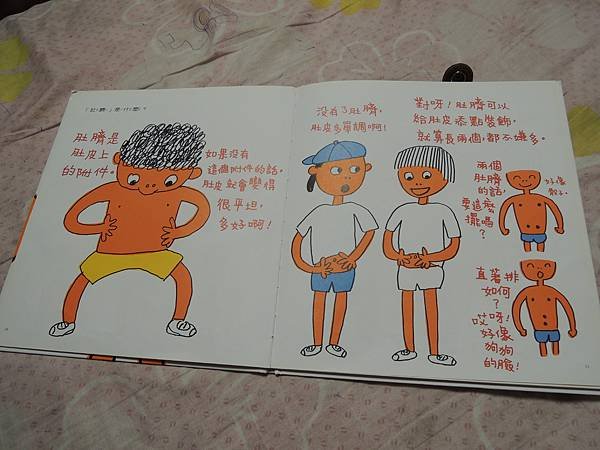 「肚臍」是什麼？
肚臍是
肚皮上
的附件。
如果沒有
這個附件的話，
肚皮就會變得
很平坦，
多好啊！
沒有了肚臍，
肚皮多單調啊！
對呀！肚臍可以
給肚皮添點裝飾，
就算長兩個，都不嫌多。
兩個
肚臍
的話，
要這麼
擺嗎
？
好像
骰子。
直著排
如何
？
哎呀！
好像
狗狗
的臉！